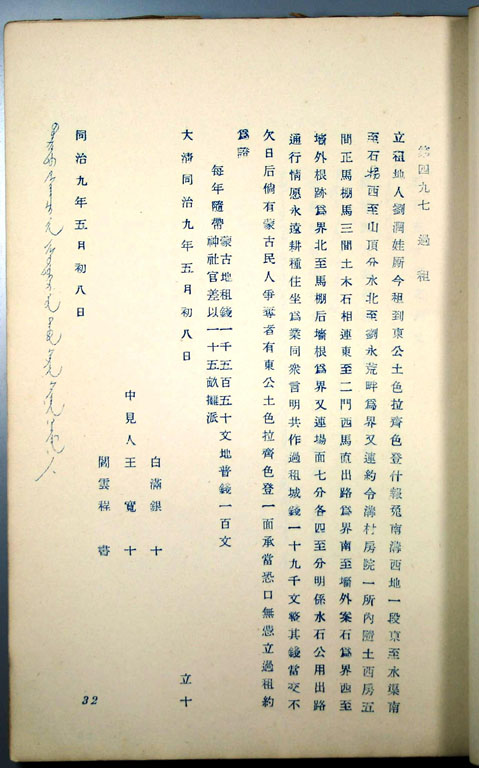 第四九七 過租
立租地人劉潤娃厮今租到東公土色拉齊色登什報兎南溝西地一段東至水渠南
至石場西至山頂分水北至劉永荒畔爲界又連約令溝村房院一所內隨土西房五
間正馬棚馬三間土木石相連東至二門西馬直出路爲界南至墻外案石爲界西至
墻外根跡爲界北至馬棚后墻根爲界又連場面七分各四至分明係水石公用出路
通行情愿永遠耕種住坐爲業同衆言明共作過租城錢一十九千文整其錢當交不
欠日后倘有蒙古民人爭奪者有東公土色拉齊色登一面承當恐口無憑立過租約
爲證
每年隨帶
蒙古地租錢一千五百五十文地普錢一百文
神社官差以一十五畝攤派
大清同治九年五月初八日 立十
白滿銀 十
中見人王寬 十
閻雲程 書
同治九年五月初八日
32